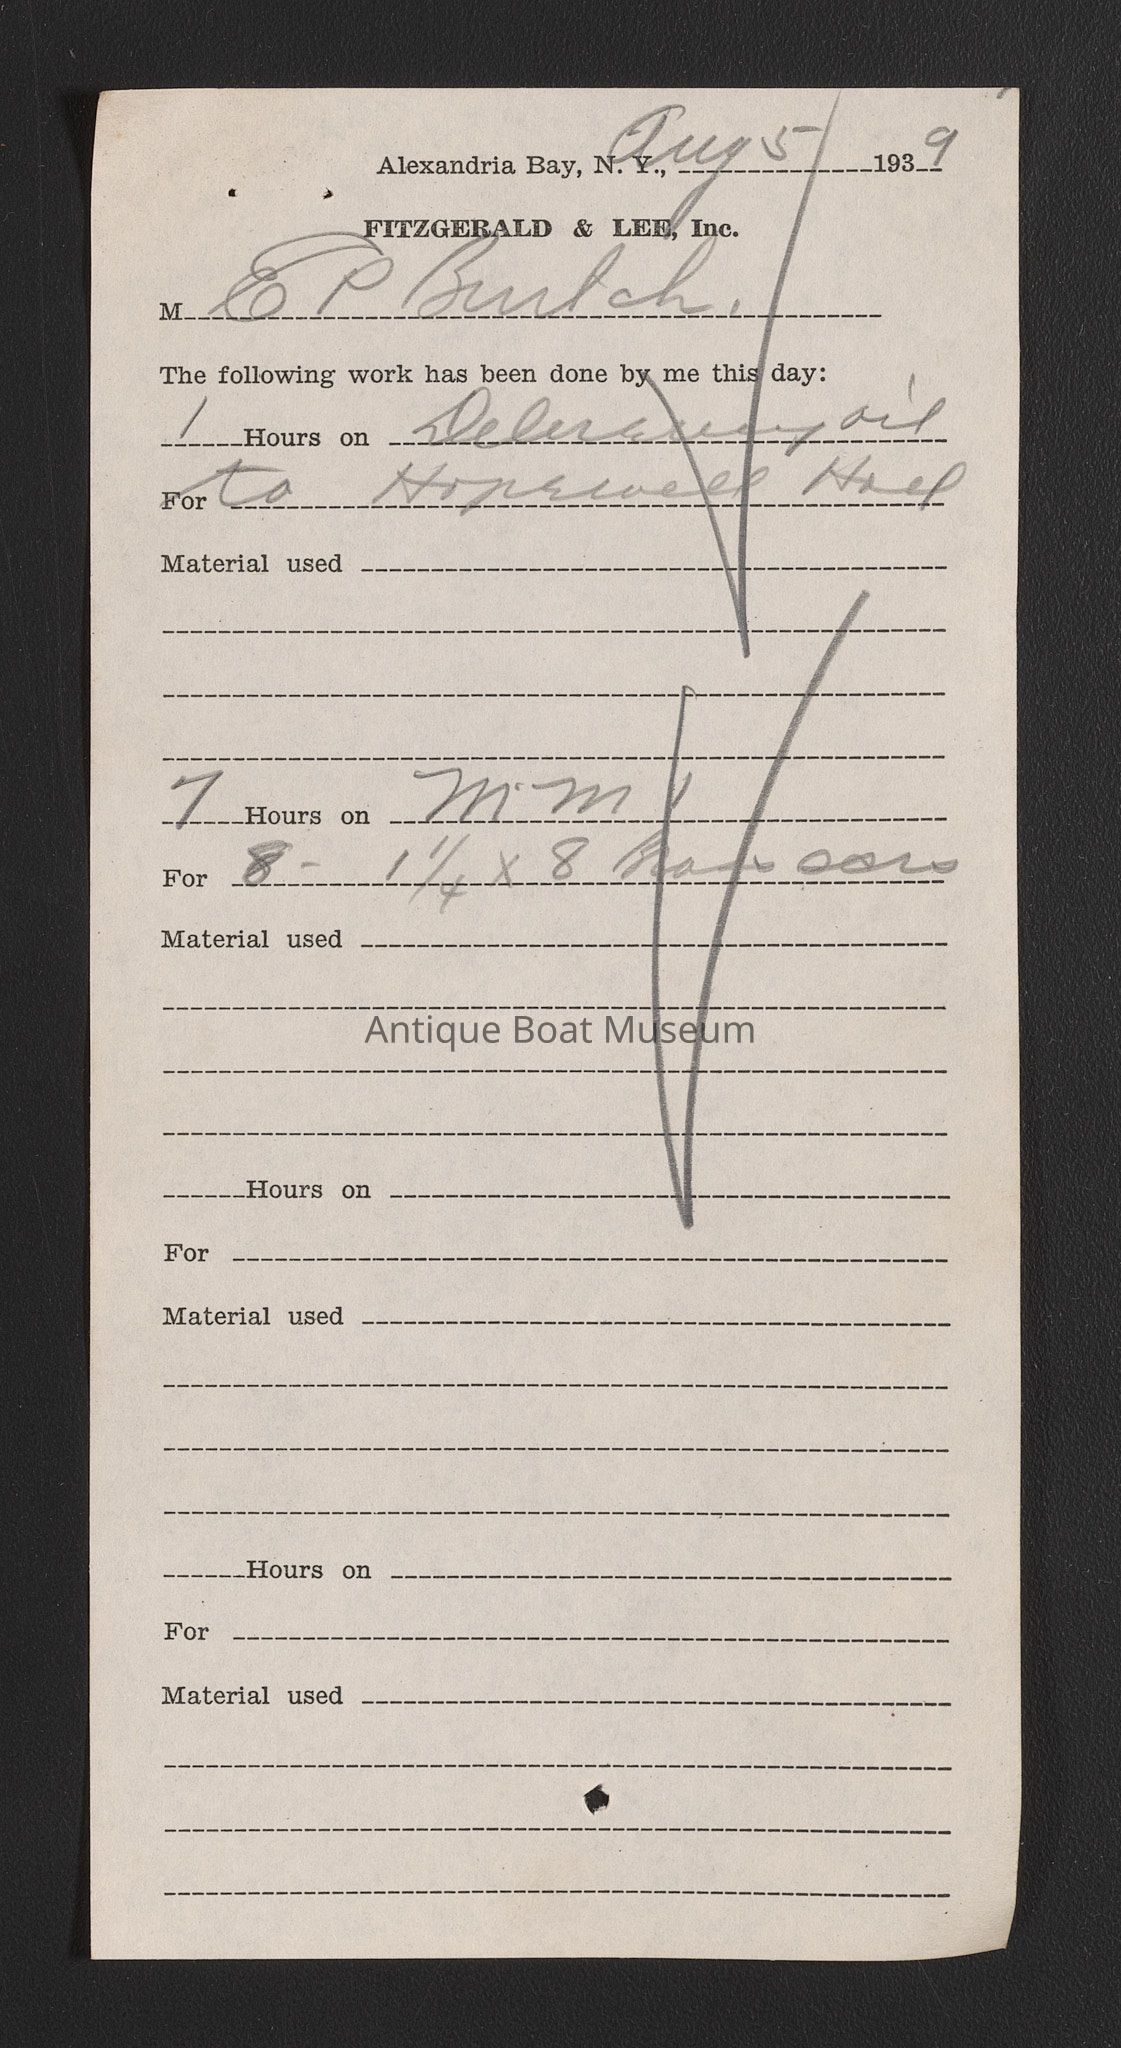 Alexandria Bay, N. Y., Aug 5 1939
FITZGERALD & LEE, Inc.
M E P Burtch.
The following work has been done by me this day:
1 Hours on Delivering oil
For to Hopewell Hall
Material used
7 Hours on M. M
For 8 - 1 1/4 x 8
Material used
Antique Boat Museum
Hours on
For
Material used
Hours on
For
Material used